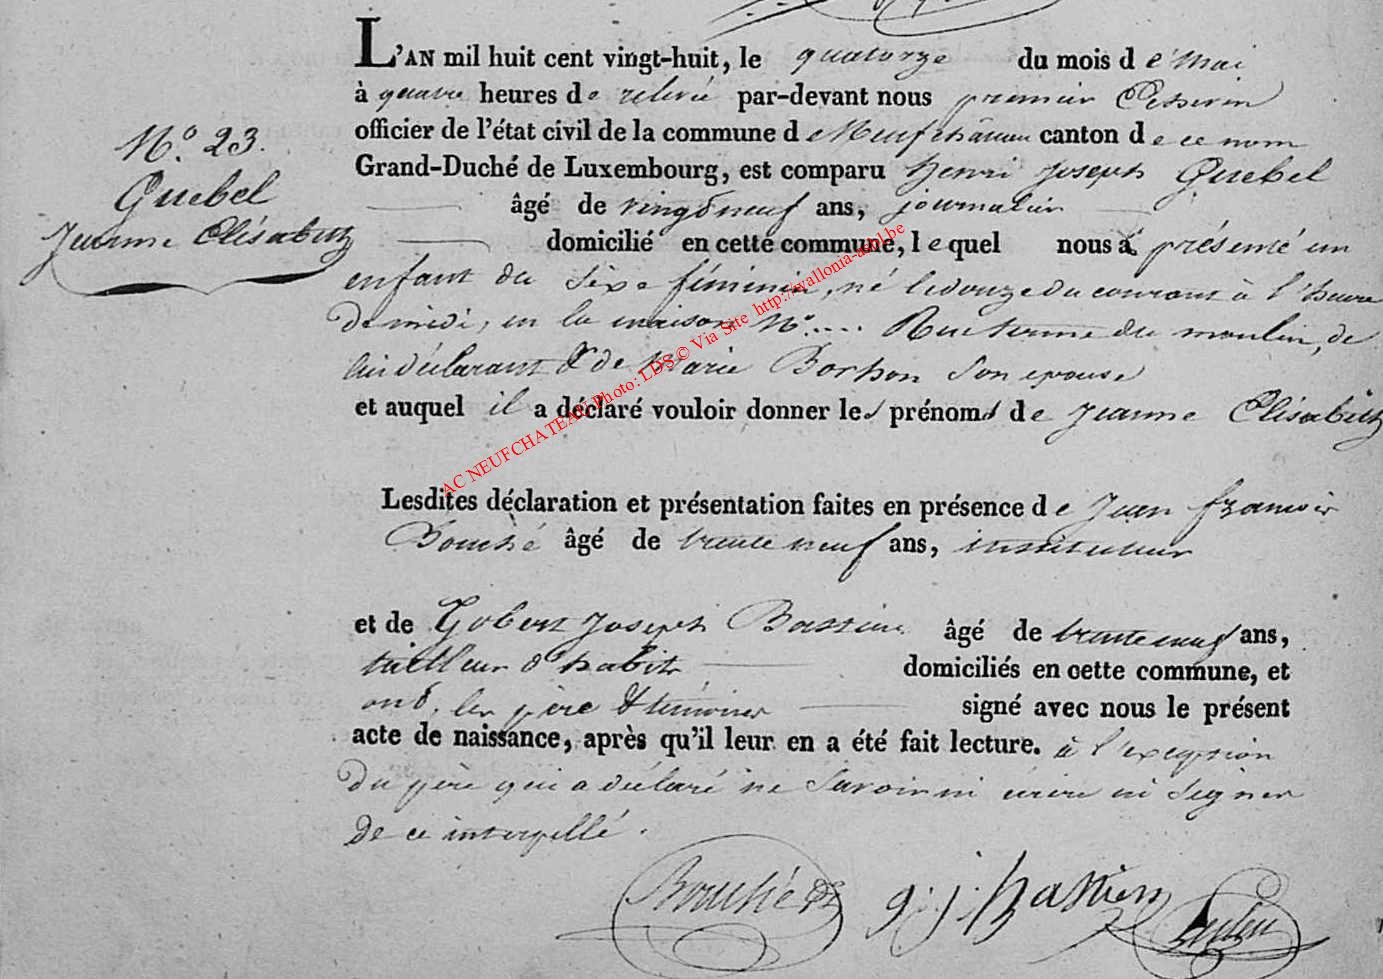 L'AN mil huit cent vingt-huit, le quatorze du mois de Mai
à quatre heures de relevé par-devant nous premier Echevin
officier de l'état civil de la commune de Neufchâteau canton de ce nom
Grand-Duché de Luxembourg, est comparu henri joseph Guebel
âgé de vingt neuf ans, journalier
domicilié en cette commune, lequel nous a présenté un
enfant du sexe féminin, né le douze du courant à l'heure
de midi, en la maison N° .... Rue terme du moulin, de
lui déclarant & de Marie Borhon son epouse
et auquel il a déclaré vouloir donner les prénoms de jeanne Elisabeth
N° 23.
Guebel
Jeanne Elisabeth
Lesdites déclaration et présentation faites en présence de jean françois
Bouché âgé de trente neuf ans, instituteur
et de Gobert joseph Bastien âgé de trente neuf ans,
tailleur d'habits domiciliés en cette commune, et
ont, les père & témoins signé avec nous le présent
acte de naissance, après qu'il leur en a été fait lecture. à l'exception
du père qui a déclaré ne savoir ni écrire ni signer
de ce interpellé.
Bouché
g. j. bastien
AC NEUFCHATEAU Photo: LDS © Via Site http://wallonia-asbl.be